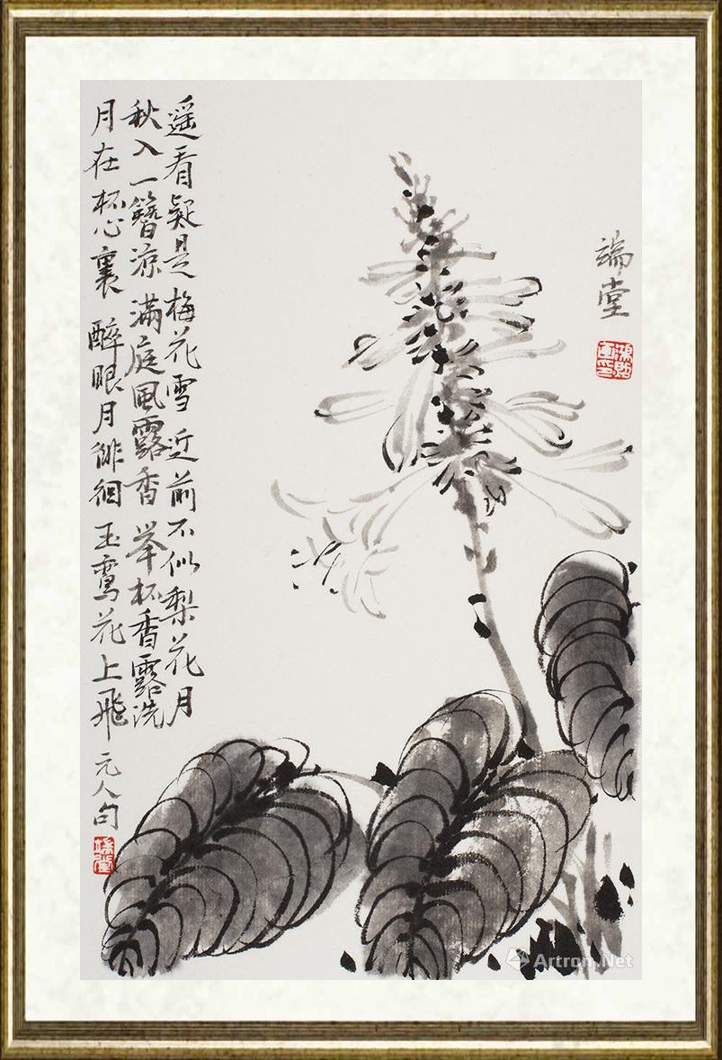 遥看疑是梅花雪近前不似梨花月
秋入一簪凉满庭風露香举杯香露洗
月在杯心裏醉眼月徘徊玉鸾花上飛
元人句
端堂
端堂
Artron.Net